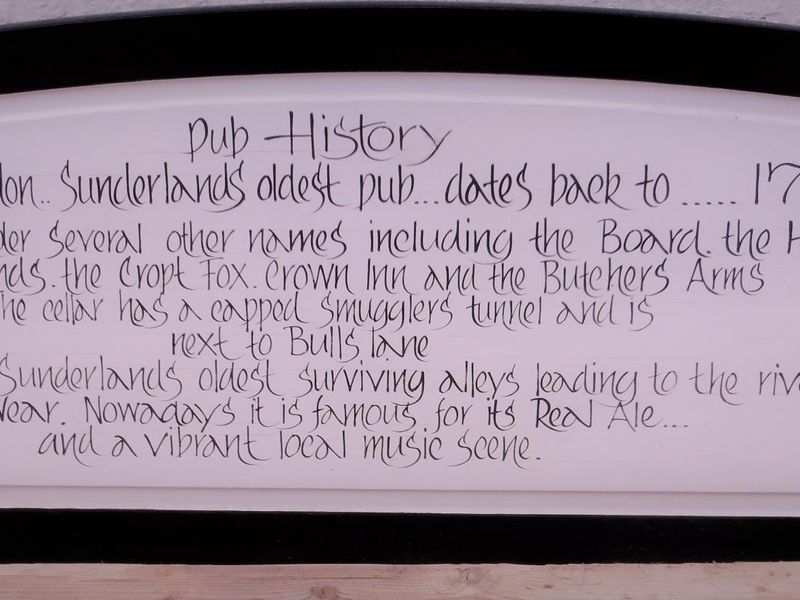 Pub History
lon.. Sunderlands oldest pub...dates back to ...... 17
der several other names including the Board. the H
nds. the Cropt Fox. Crown Inn and the Butchers Arms
he cellar has a capped smugglers tunnel and is
next to Bulls lane
Sunderlands oldest surviving alleys leading to the riv
Wear. Nowadays it is famous for its Real Ale...
and a vibrant local music scene.